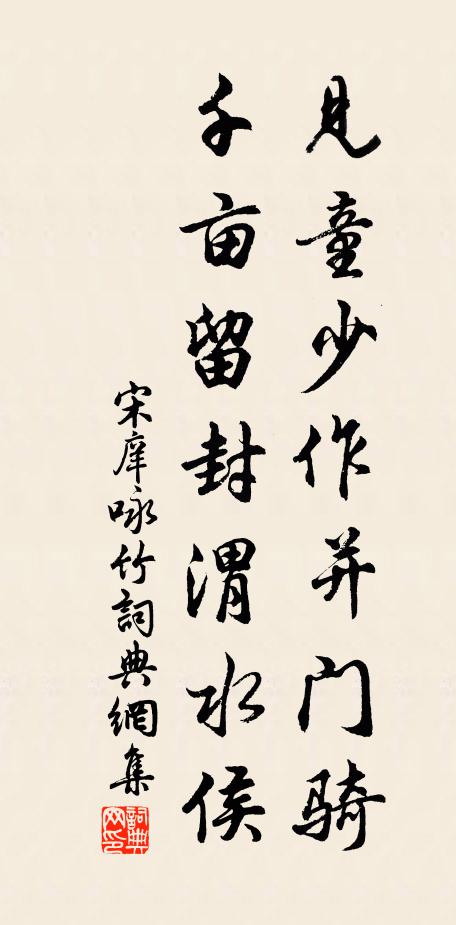 見童少作并门骑
千亩留封渭水侯
宋庠咏竹詞典網集
詞典网印